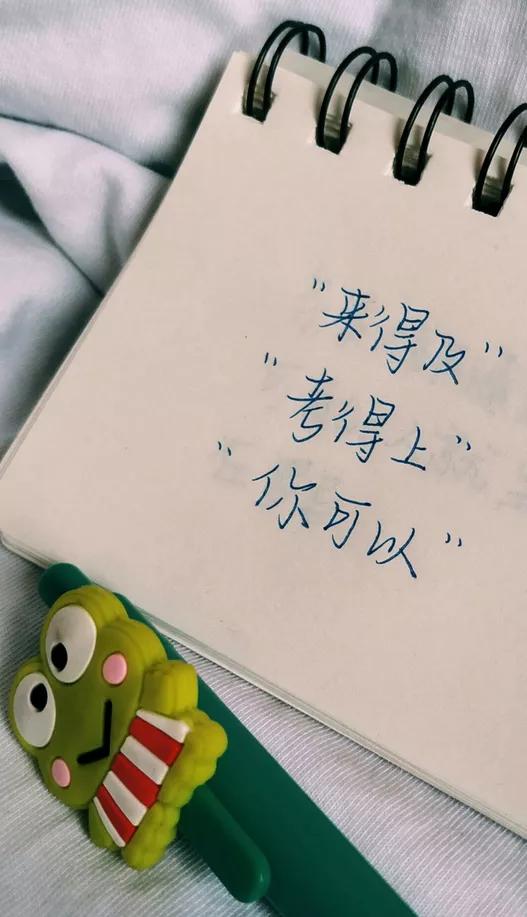 "来得及"
"考得上"
"你可以"